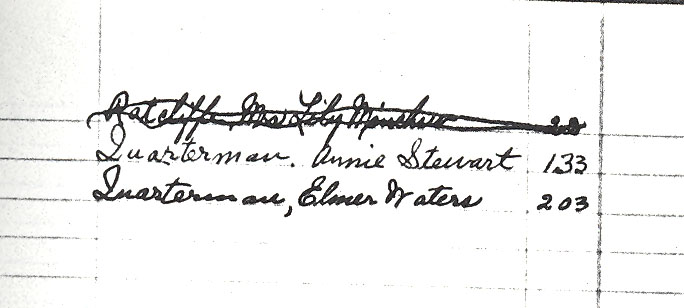 Ratcliffe Mrs Lily Minshew 22
Quarterman. Annie Stewart 133
Quarterman, Elmer Waters 203